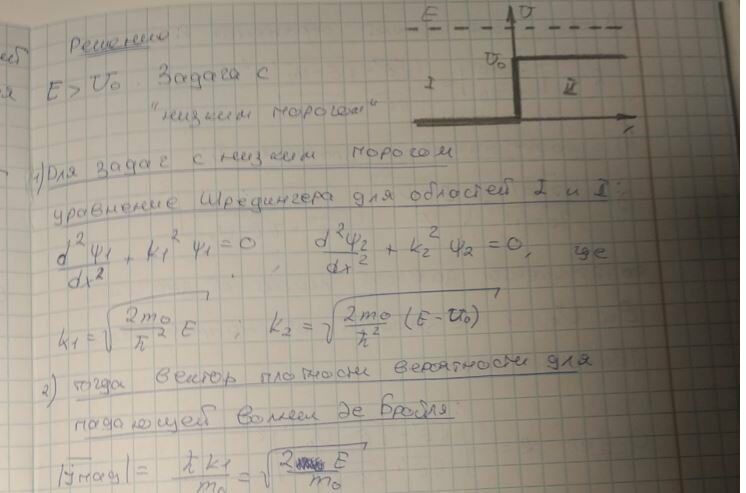 Решение:
E > U₀. Задача с
"низким порогом"
E
U
U₀
I
II
x
1) Для задач с низким порогом
уравнение Шредингера для областей I и II:
d²ψ₁/dx² + k₁² ψ₁ = 0, d²ψ₂/dx² + k₂² ψ₂ = 0, где
k₁ = √(2m₀/ħ² E) ; k₂ = √(2m₀/ħ² (E - U₀))
2) тогда вектор плотности вероятности для
падающей волны де Бройля:
|j пад| = ħk₁/m₀ = √(2E/m₀)